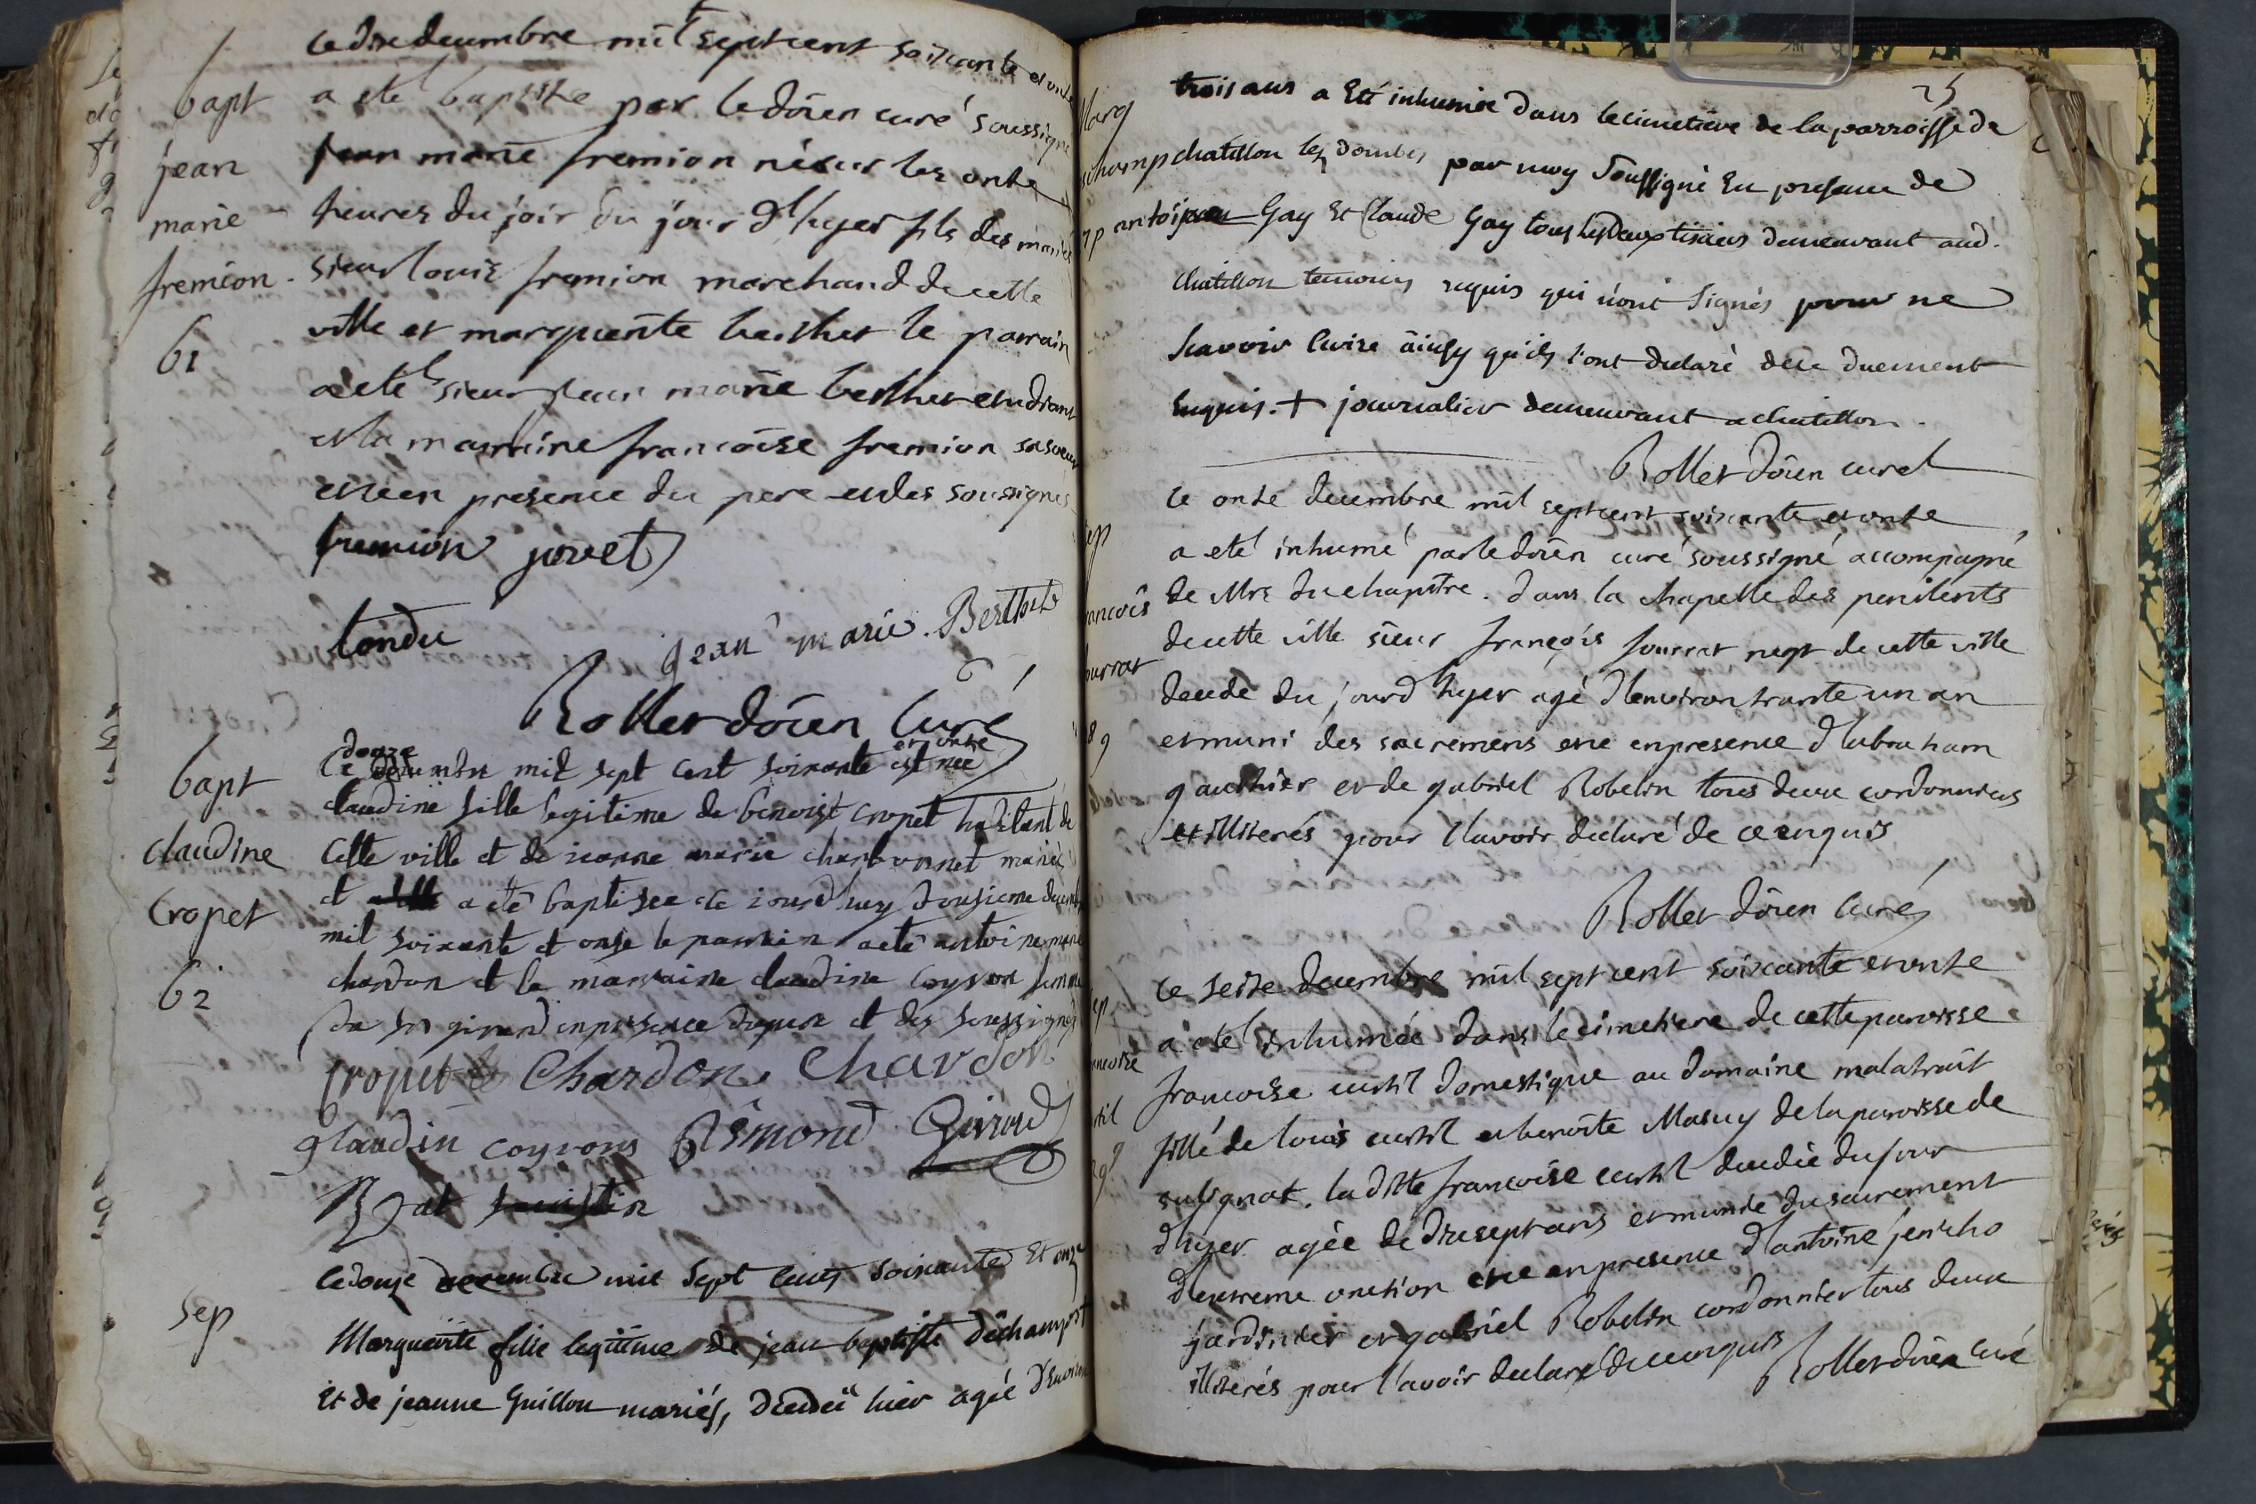 bapt
jean
marie
fremion
61
le dix decembre mil sept cent soixante et onze
a eté baptisé par le doïen curé soussigné
jean marie fremion né sur les onze
heures du soir du jour d'hyer fils des mariés
sieur louis fremion marchand de cette
ville et marguerite berthet le parrain
a eté sieur jean marie berthet etudiant
et la marraine francoise fremion sa soeur
et ce en presence du pere et des soussignés
fremion jovet
tondu
jean marie Berthet
Rollet doïen Curé
bapt
claudine
Cropet
62
Ce douze decembre mil sept cent soixante et onze est née
claudine fille legitime de benoist cropet habitant de
Cette ville et de jeanne marie charbonnet mariés
et a eté baptisee ce jourdhuy dousieme decembre
mil soixante et onse le parrain a eté antoine marie
chardon et la marraine claudine coyron femme
du sr giraud en presence du pere et des soussignés
Cropet Chardon Chardon
glaudin coyrons Esmond Giraud
Sep
Le douze decembre mil sept cents soixante Et onze
Marguerite fille legitime de jean baptiste dechamps
Et de jeanne Guillon mariés, decedeé hier ageé d'Environ
25
trois ans a Eté inhumée dans le cimetiere de la parroisse de
chatillon les dombes par moy soussigné En presence de
antoine Gay Et Claude Gay tous les deux tisiers demeurant aud.
chatillon temoins requis qui n'ont signés pour ne
scavoir Ecrire ainsy qu'ils l'ont declaré de ce duement
Enquis. + journalier demeurant a chatillon.
Rollet doïen curé
rancois
ourrat
89
le onze decembre mil sept cent soixante et onze
a eté inhumé par le doïen curé soussigné accompagné
de Mrs du chapitre. dans la chapelle des penitents
de cette ville sieur françois fourrat negt de cette ville
decede du jour d'hyer agé d'environ trante un an
et muni des sacremens et ce en presence d'abraham
gauthier et de gabriel Robelin tous deux cordonniers
et illiterés pour l'avoir declaré de ce enquis
Rollet doïen Curé
le seize decembre mil sept cent soixante et onze
a eté inhumée dans le cimetiere de cette paroisse
francoise curtil domestique au domaine malatrait
fille de louis curtil et benoite Masuy de la paroisse de
sulignat. la ditte francoise curtil decedée du jour
d'hyer agée de dix sept ans et munie du sacrement
d'extreme onction et ce en presence d'antoine jericho
jardinier et gabriel Robelin cordonnier tous deux
illiterés pour l'avoir declaré de ce enquis
Rollet doïen curé